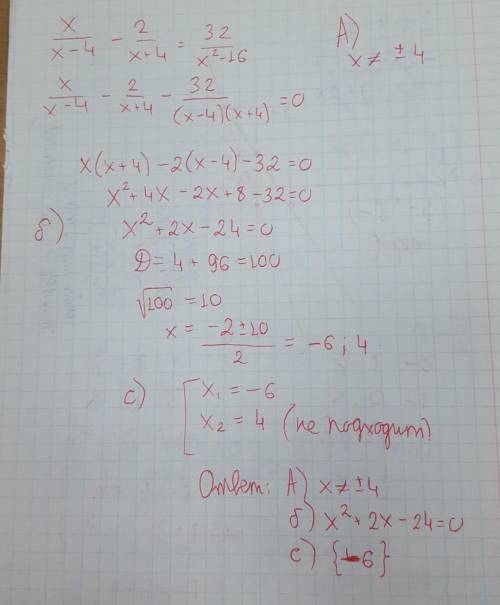 x/(x-4) - 2/(x+4) = 32/(x²-16)
А) x ≠ ±4
x/(x-4) - 2/(x+4) - 32/((x-4)(x+4)) = 0
x(x+4) - 2(x-4) - 32 = 0
x² + 4x - 2x + 8 - 32 = 0
б) x² + 2x - 24 = 0
D = 4 + 96 = 100
√100 = 10
x = (-2 ± 10)/2 = -6; 4
c) [ x₁ = -6
x₂ = 4 (не подходит)
Ответ: А) x ≠ ±4
б) x² + 2x - 24 = 0
c) {-6}